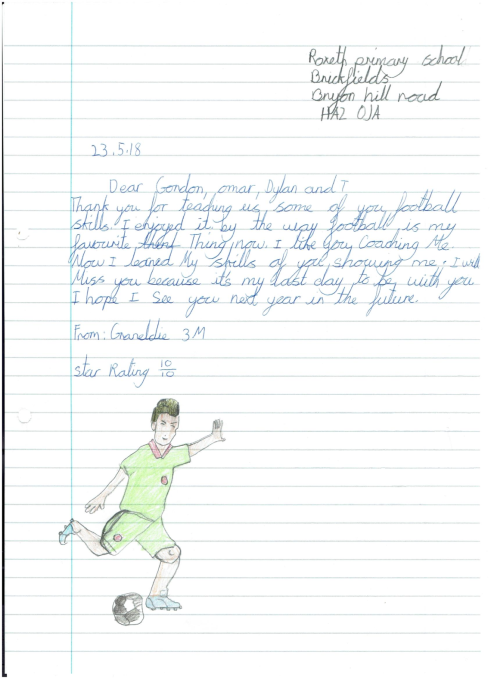 Roxeth primary school
Brickfields
Bryon hill road
HA2 0JA
23.5.18
Dear Gordon, omar, Dylan and T,
Thank you for teaching us, some of you football
skills. I enjoyed it by the way football is my
favourite Thing now. I like you Coaching Me.
Now I leaned My skills of you showing me. I will
Miss you because it's my last day to be with you
I hope I See you next year in the future.
From: Graneldie 3M
star Rating 10/10